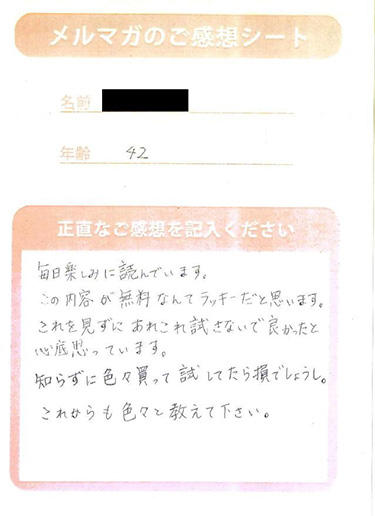 メルマガのご感想シート
名前
年齢 42
正直なご感想を記入ください
毎日楽しみに読んでいます。
この内容が無料なんてラッキーだと思います。
これを見ずにあれこれ試さないで良かったと
心底思っています。
知らずに色々買って試してたら損でしょうし。
これからも色々と教えて下さい。